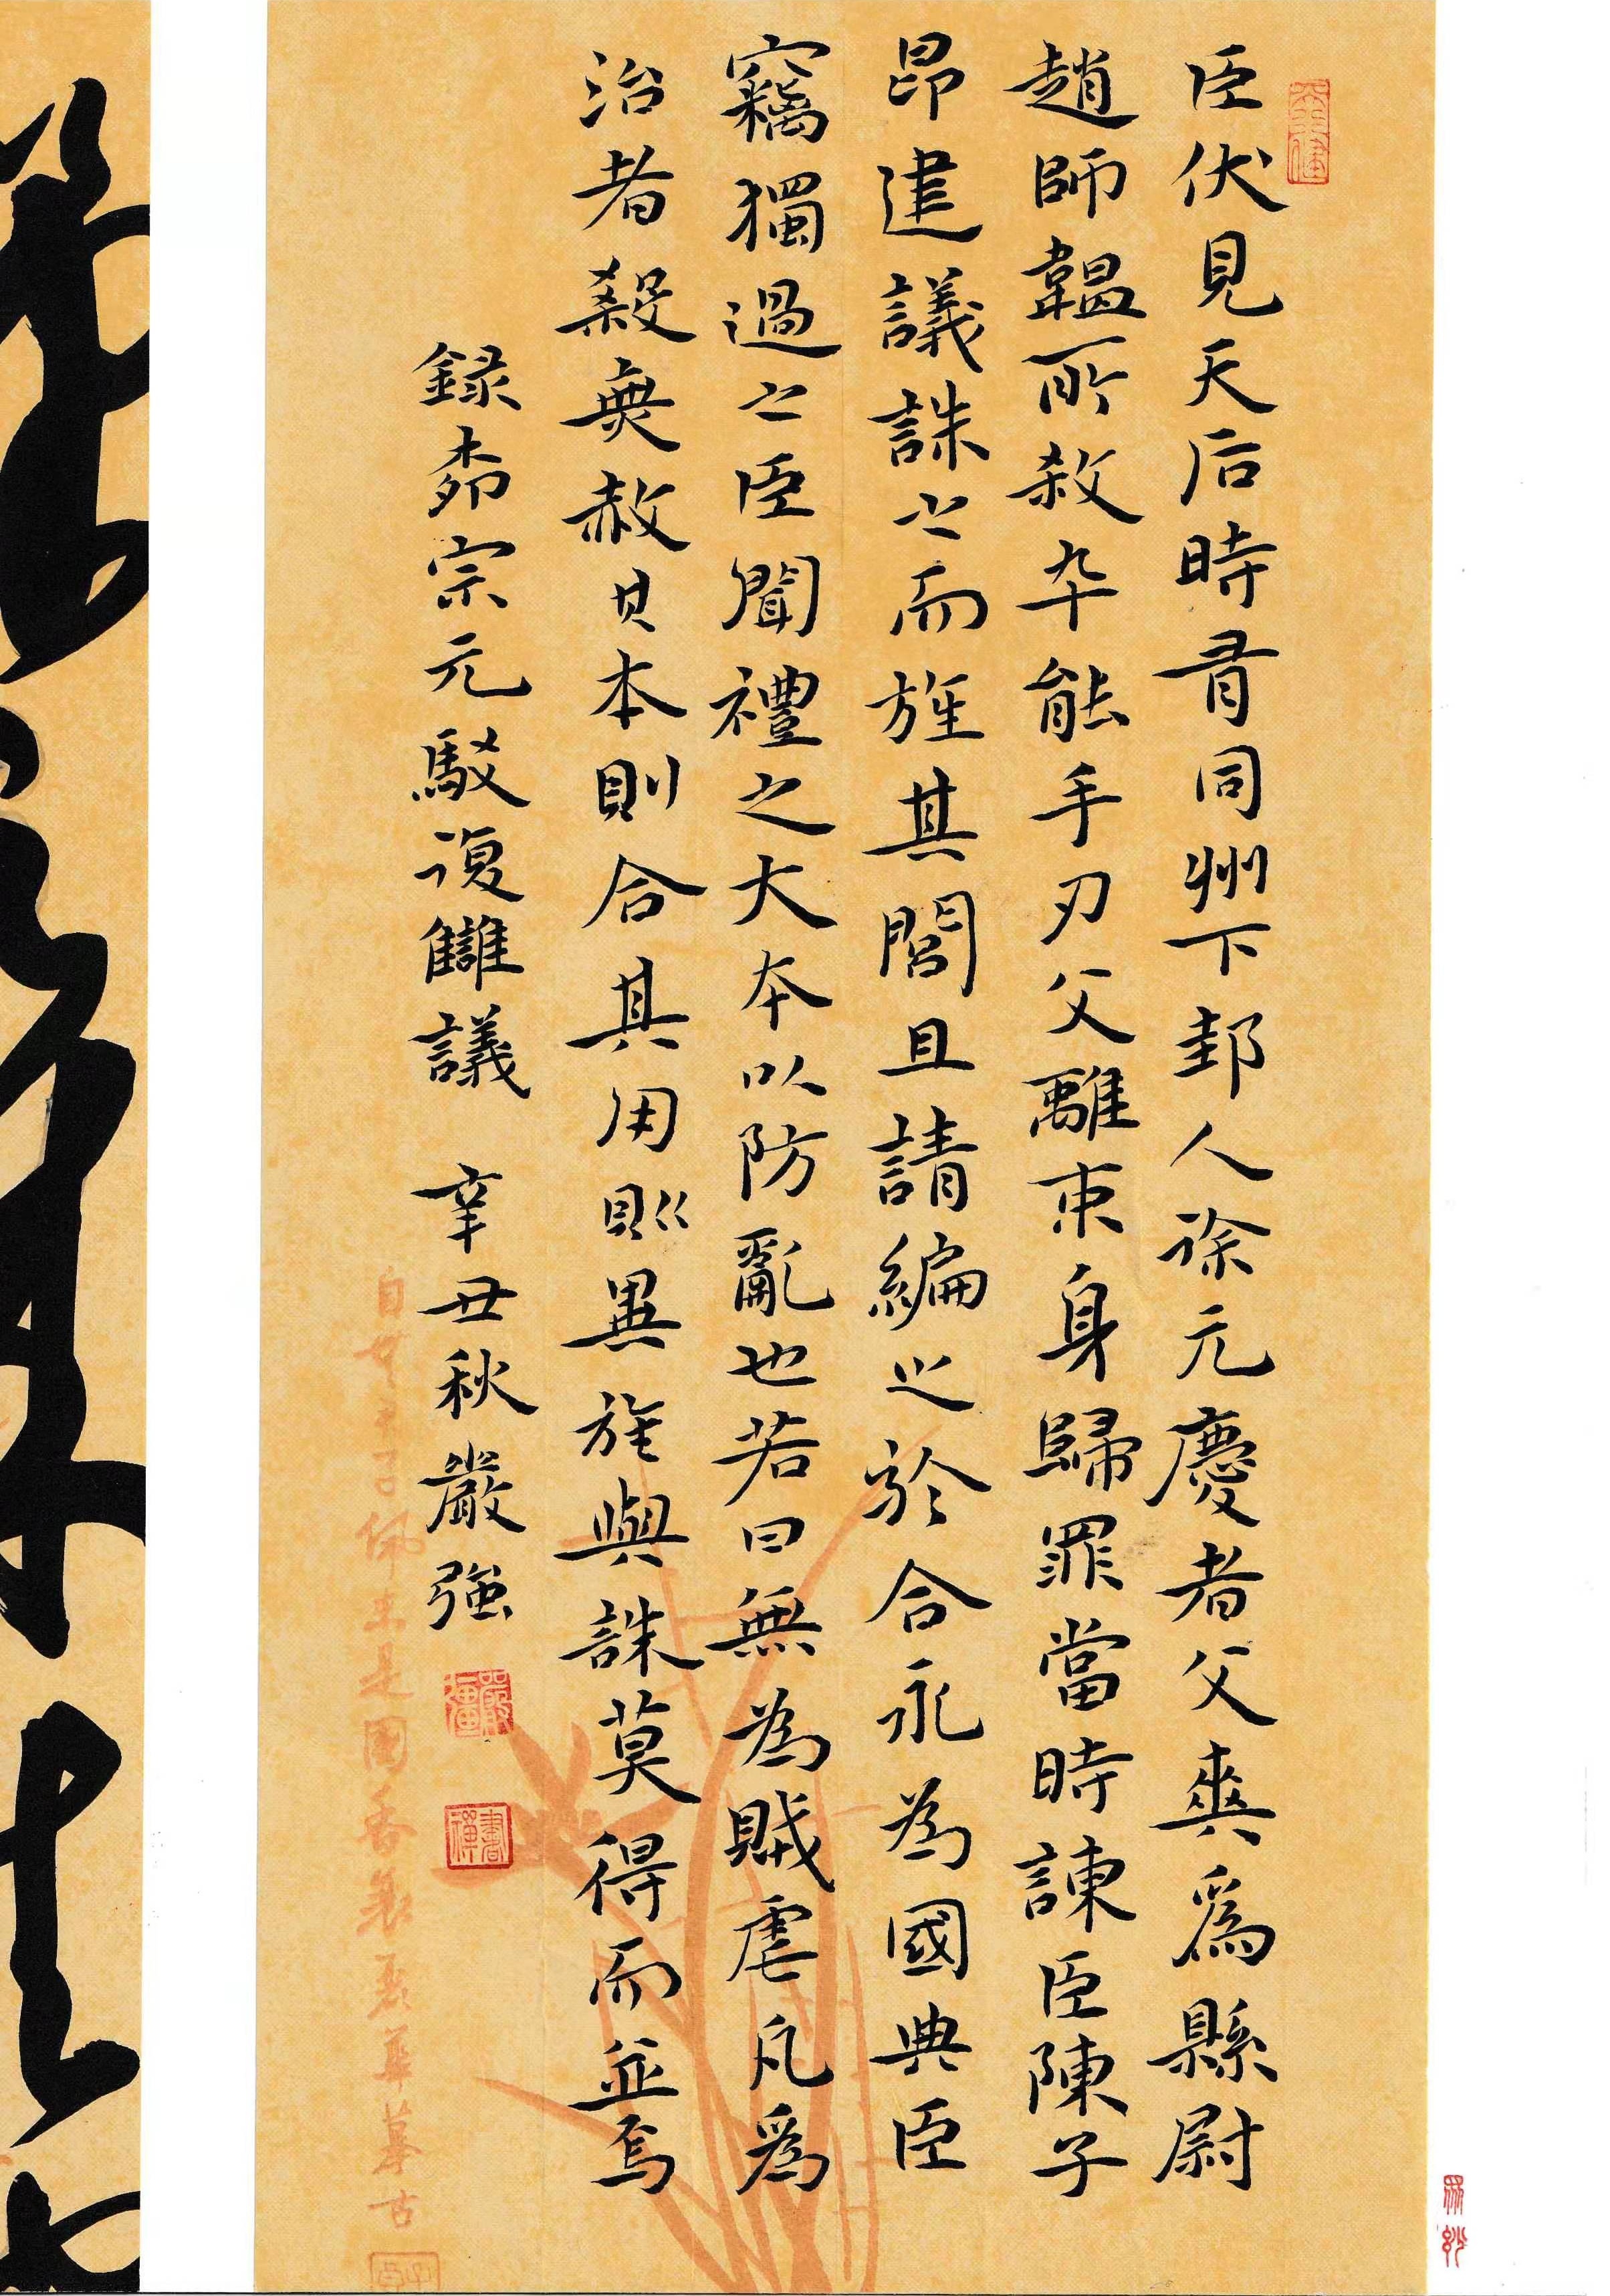 臣伏見天后時有同州下邽人徐元慶者父爽爲縣尉
趙師韞所殺卒能手刃父讎束身歸罪當時諫臣陳子
昂建議誅之而旌其閭且請編之於令永為國典臣
竊獨過之臣聞禮之大本以防亂也若曰無為賊虐凡爲
治者殺無赦其本則合其用則異旌與誅莫得而並焉
錄柳宗元駁復讎議 辛丑秋嚴強